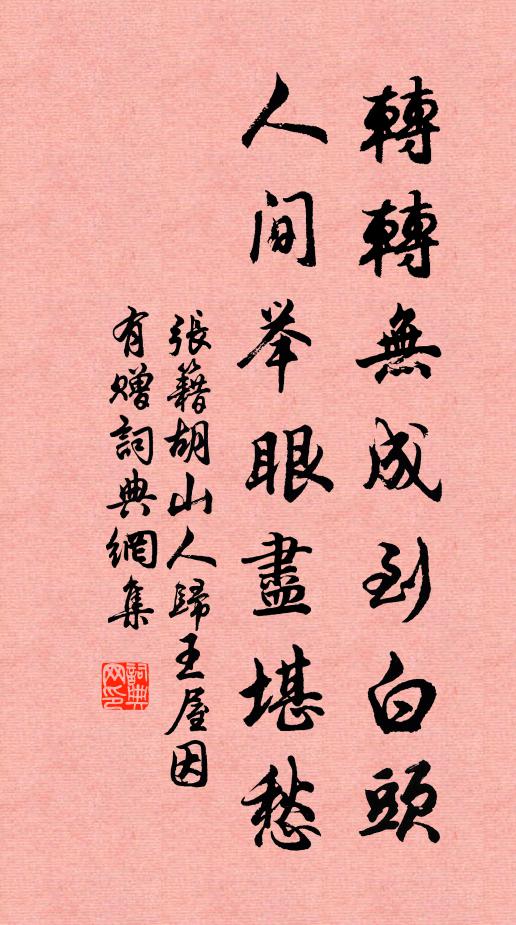 轉轉無成到白頭
人間举眼盡堪愁
張籍胡山人歸王屋因
有赠詞典網集
詞典
网印